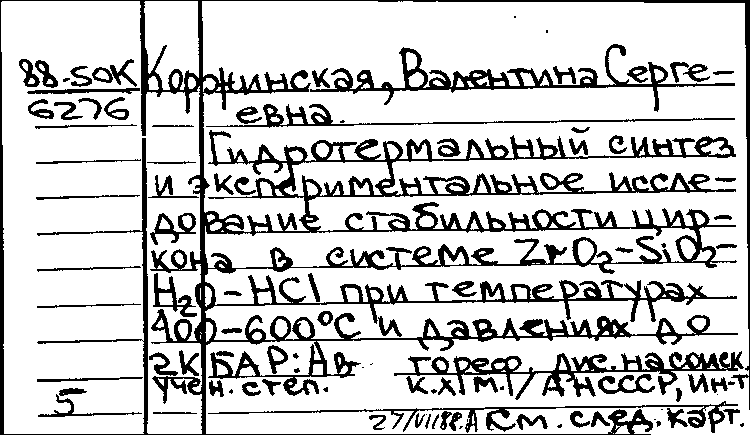 88-50K Коржинская, Валентина Серге-
6276 евна.
Гидротермальный синтез
и экспериментальное иссле-
дование стабильности цир-
кона в системе ZrO₂-SiO₂-
H₂O-HCl при температурах
400-600°С и давлениях до
2К БАР: Ав тореф. дис. на соиск.
учен. степ. к.х/м./ АН СССР, Ин-т
5
27/VII88. См. след. карт.